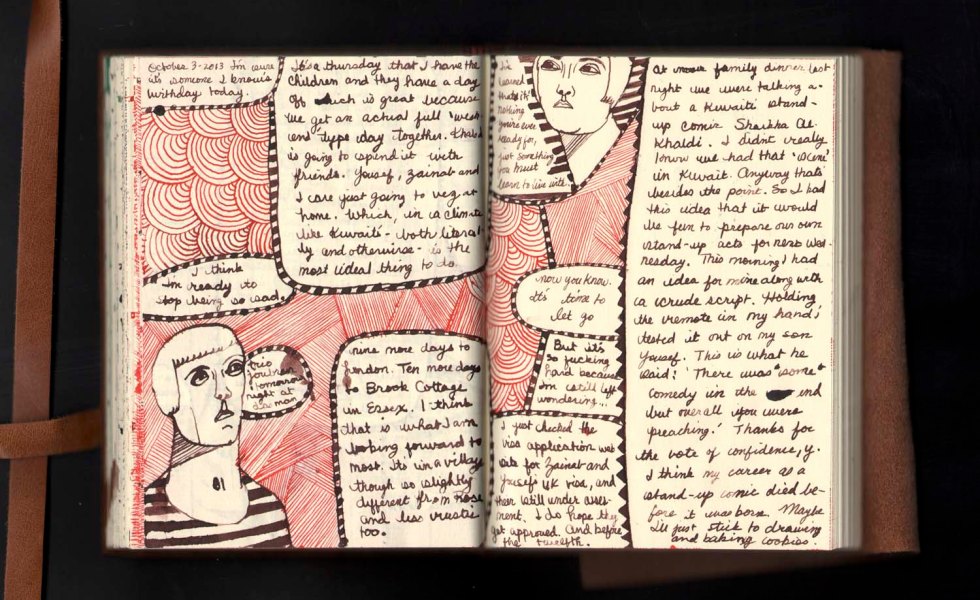 October 3-2013 I'm sure
it's someone I know's
birthday today.
It's a thursday that I have the
children and they have a day
off which is great because
we get an actual full "week-
end" type day together. Khaled
is going to spend it with
friends. Yousef, Zainab and
I are just going to veg. at
home. Which, in a climate
like Kuwait's - both literal-
ly and otherwise - is the
most ideal thing to do.
I think
I'm ready to
stop being so sad.
tomorrow
night at
nine more days to
London. Ten more days
to Brook Cottage
in Essex. I think
that is what I am
looking forward to
most. Its in a village
though so slightly
different from
and less rustic
too.
I've
learned
that it
nothing
you're ever
ready for,
just something
you must
learn to live with.
now you know.
It's time to
let go
But it's
so fucking
hard because
I'm still left
wondering...
I just checked the
visa application web
site for Zainab and
Yousef's UK visa, and
their still under asses-
ment. I do hope they
get approved. And before
the twelfth.
At our family dinner last
night we were talking a-
bout a Kuwaiti stand-
up comic Shaikha Al
Khaldi. I didnt really
know we had that 'scene'
in Kuwait. Anyway thats
besides the point. So I had
this idea that it would
be fun to prepare our own
stand-up acts for next Wed-
nesday. This morning I had
an idea for mine along with
a crude script. Holding
the remote in my hand i
tested it out on my son
Yousef. This is what he
said: 'There was "some"
comedy in the end
but overall you were
preaching.' Thanks for
the vote of confidence, Y.
I think my career as a
stand-up comic died be-
fore it was born. Maybe
I'll just stick to drawing
and baking cookies.